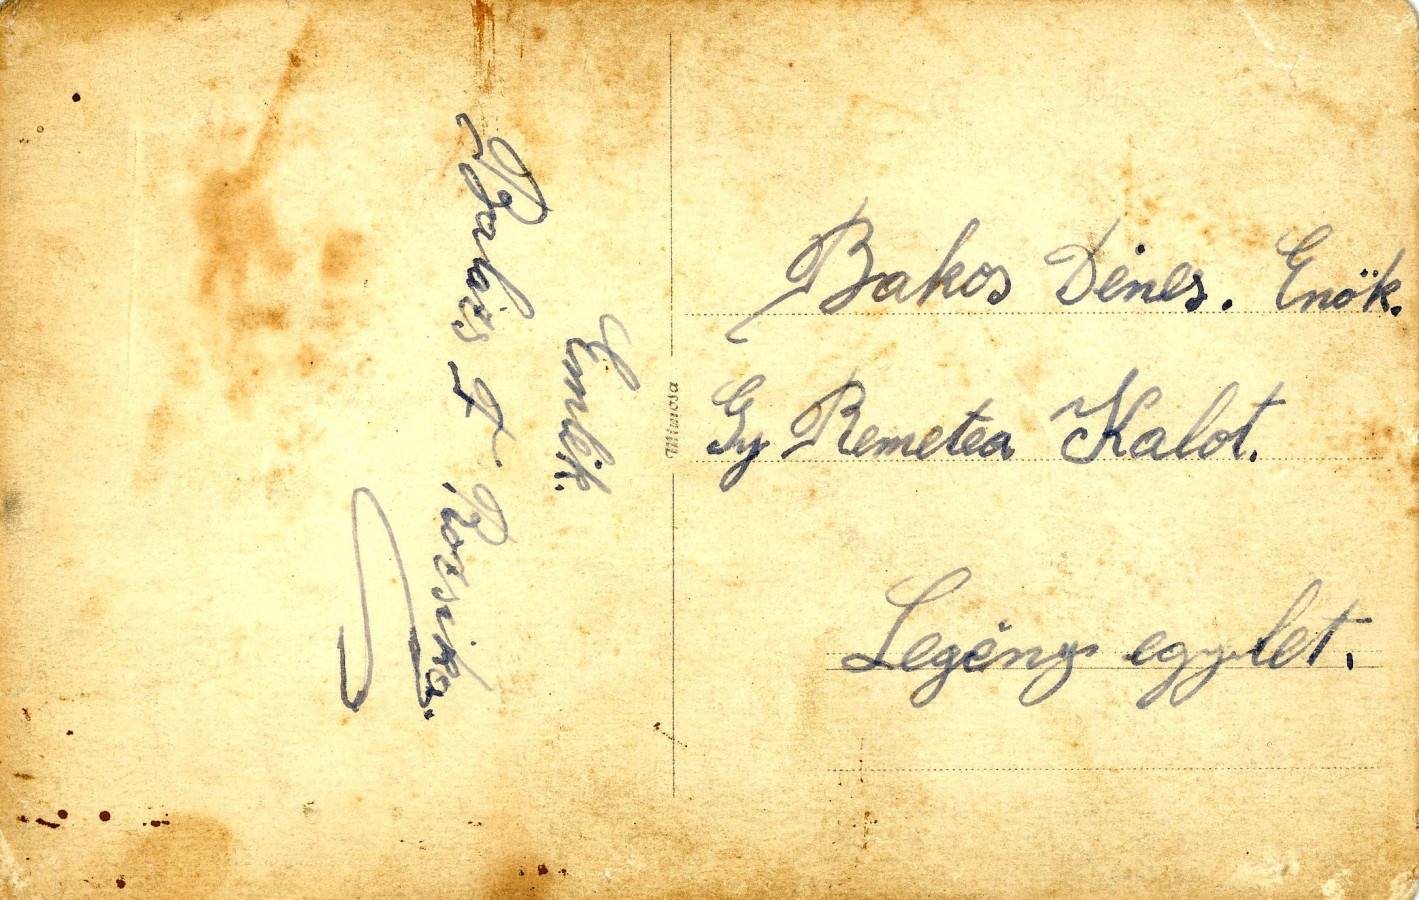 Emlék.
Balázs F Rozsika.
Mimosa
Bakos Dénes. Enök.
Gy Remetea Kalot.
Legény egylet.